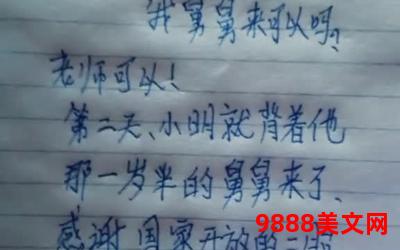 我舅舅来可以吗?
老师可以!
第二天、小明就背着他
那一岁半的舅舅来了、
感谢国家开放的二
9888美文网